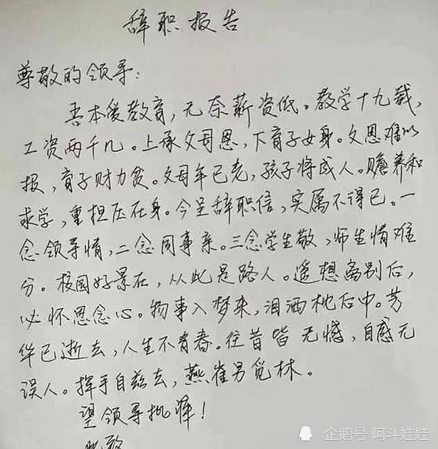 辞职报告
尊敬的领导:
吾本爱教育,无奈薪资低。教学十九载,
工资两千几。上承父母恩,下育子女身。父恩难以
报,育子财力贫。父母年已老,孩子将成人。赡养和
求学,重担压在身。今呈辞职信,实属不得已。一
念领导情,二念同事亲。三念学生敬,师生情难
分。校园好景在,从此是路人。遥想离别后,
必怀思念心。物事入梦来,泪洒枕后中。芳
华已逝去,人生不青春。往昔皆无憾,自感无
误人。挥手自兹去,燕雀另觅林。
望领导批准!
此致
企鹅号 阿斗娃娃